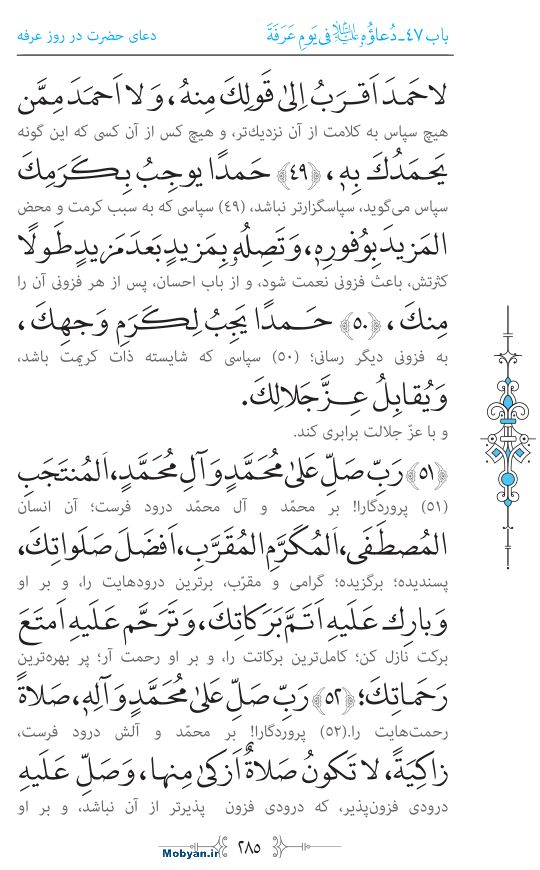 باب ۴۷ـ دُعاؤُهُ علیه‌السلام فی یَومِ عَرَفَةَ
دعای حضرت در روز عرفه
لاحَمدَ اَقرَبُ اِلىٰ قَولِكَ مِنهُ، وَ لا اَحمَدَ مِمَّن
هیچ سپاس به کلامت از آن نزدیک‌تر، و هیچ کس از آن کسی که این گونه
یَحمَدُكَ بِهِ، ﴿۴۹﴾ حَمدًا یوجِبُ بِكَرَمِكَ
سپاس می‌گوید، سپاسگزارتر نباشد، (۴۹) سپاسی که به سبب کرمت و محض
المَزیدَ بِوُفورِهِ، وَ تَصِلُهُ بِمَزیدٍ بَعدَ مَزیدٍ طَولًا
کثرتش، باعث فزونی نعمت شود، و از باب احسان، پس از هر فزونی آن را
مِنكَ، ﴿۵۰﴾ حَمدًا یَجِبُ لِكَرَمِ وَجهِكَ،
به فزونی دیگر رسانی؛ (۵۰) سپاسی که شایسته ذات کریمت باشد،
وَ یُقابِلُ عِزَّ جَلالِكَ.
و با عزّ جلالت برابری کند.
﴿۵۱﴾ رَبِّ صَلِّ عَلىٰ مُحَمَّدٍ وَ آلِ مُحَمَّدٍ، اَلمُنتَجَبِ
(۵۱) پروردگارا! بر محمّد و آل محمّد درود فرست؛ آن انسان
المُصطَفَى، اَلمُكَرَّمِ المُقَرَّبِ، اَفضَلَ صَلَواتِكَ،
پسندیده؛ برگزیده؛ گرامی و مقرّب، برترین درودهایت را، و بر او
وَ بارِك عَلَیهِ اَتَمَّ بَرَكاتِكَ، وَ تَرَحَّم عَلَیهِ اَمتَعَ
برکت نازل کن؛ کامل‌ترین برکاتت را، و بر او رحمت آر؛ پر بهره‌ترین
رَحَماتِكَ؛ ﴿۵۲﴾ رَبِّ صَلِّ عَلىٰ مُحَمَّدٍ وَ آلِهِ، صَلاةً
رحمت‌هایت را.(۵۲) پروردگارا! بر محمّد و آلش درود فرست،
زاكِیَةً، لا تَكونُ صَلاةٌ اَزكىٰ مِنها، وَ صَلِّ عَلَیهِ
درودی فزون‌پذیر، که درودی فزون پذیرتر از آن نباشد، و بر او
۲۸۵
Mobyan.ir